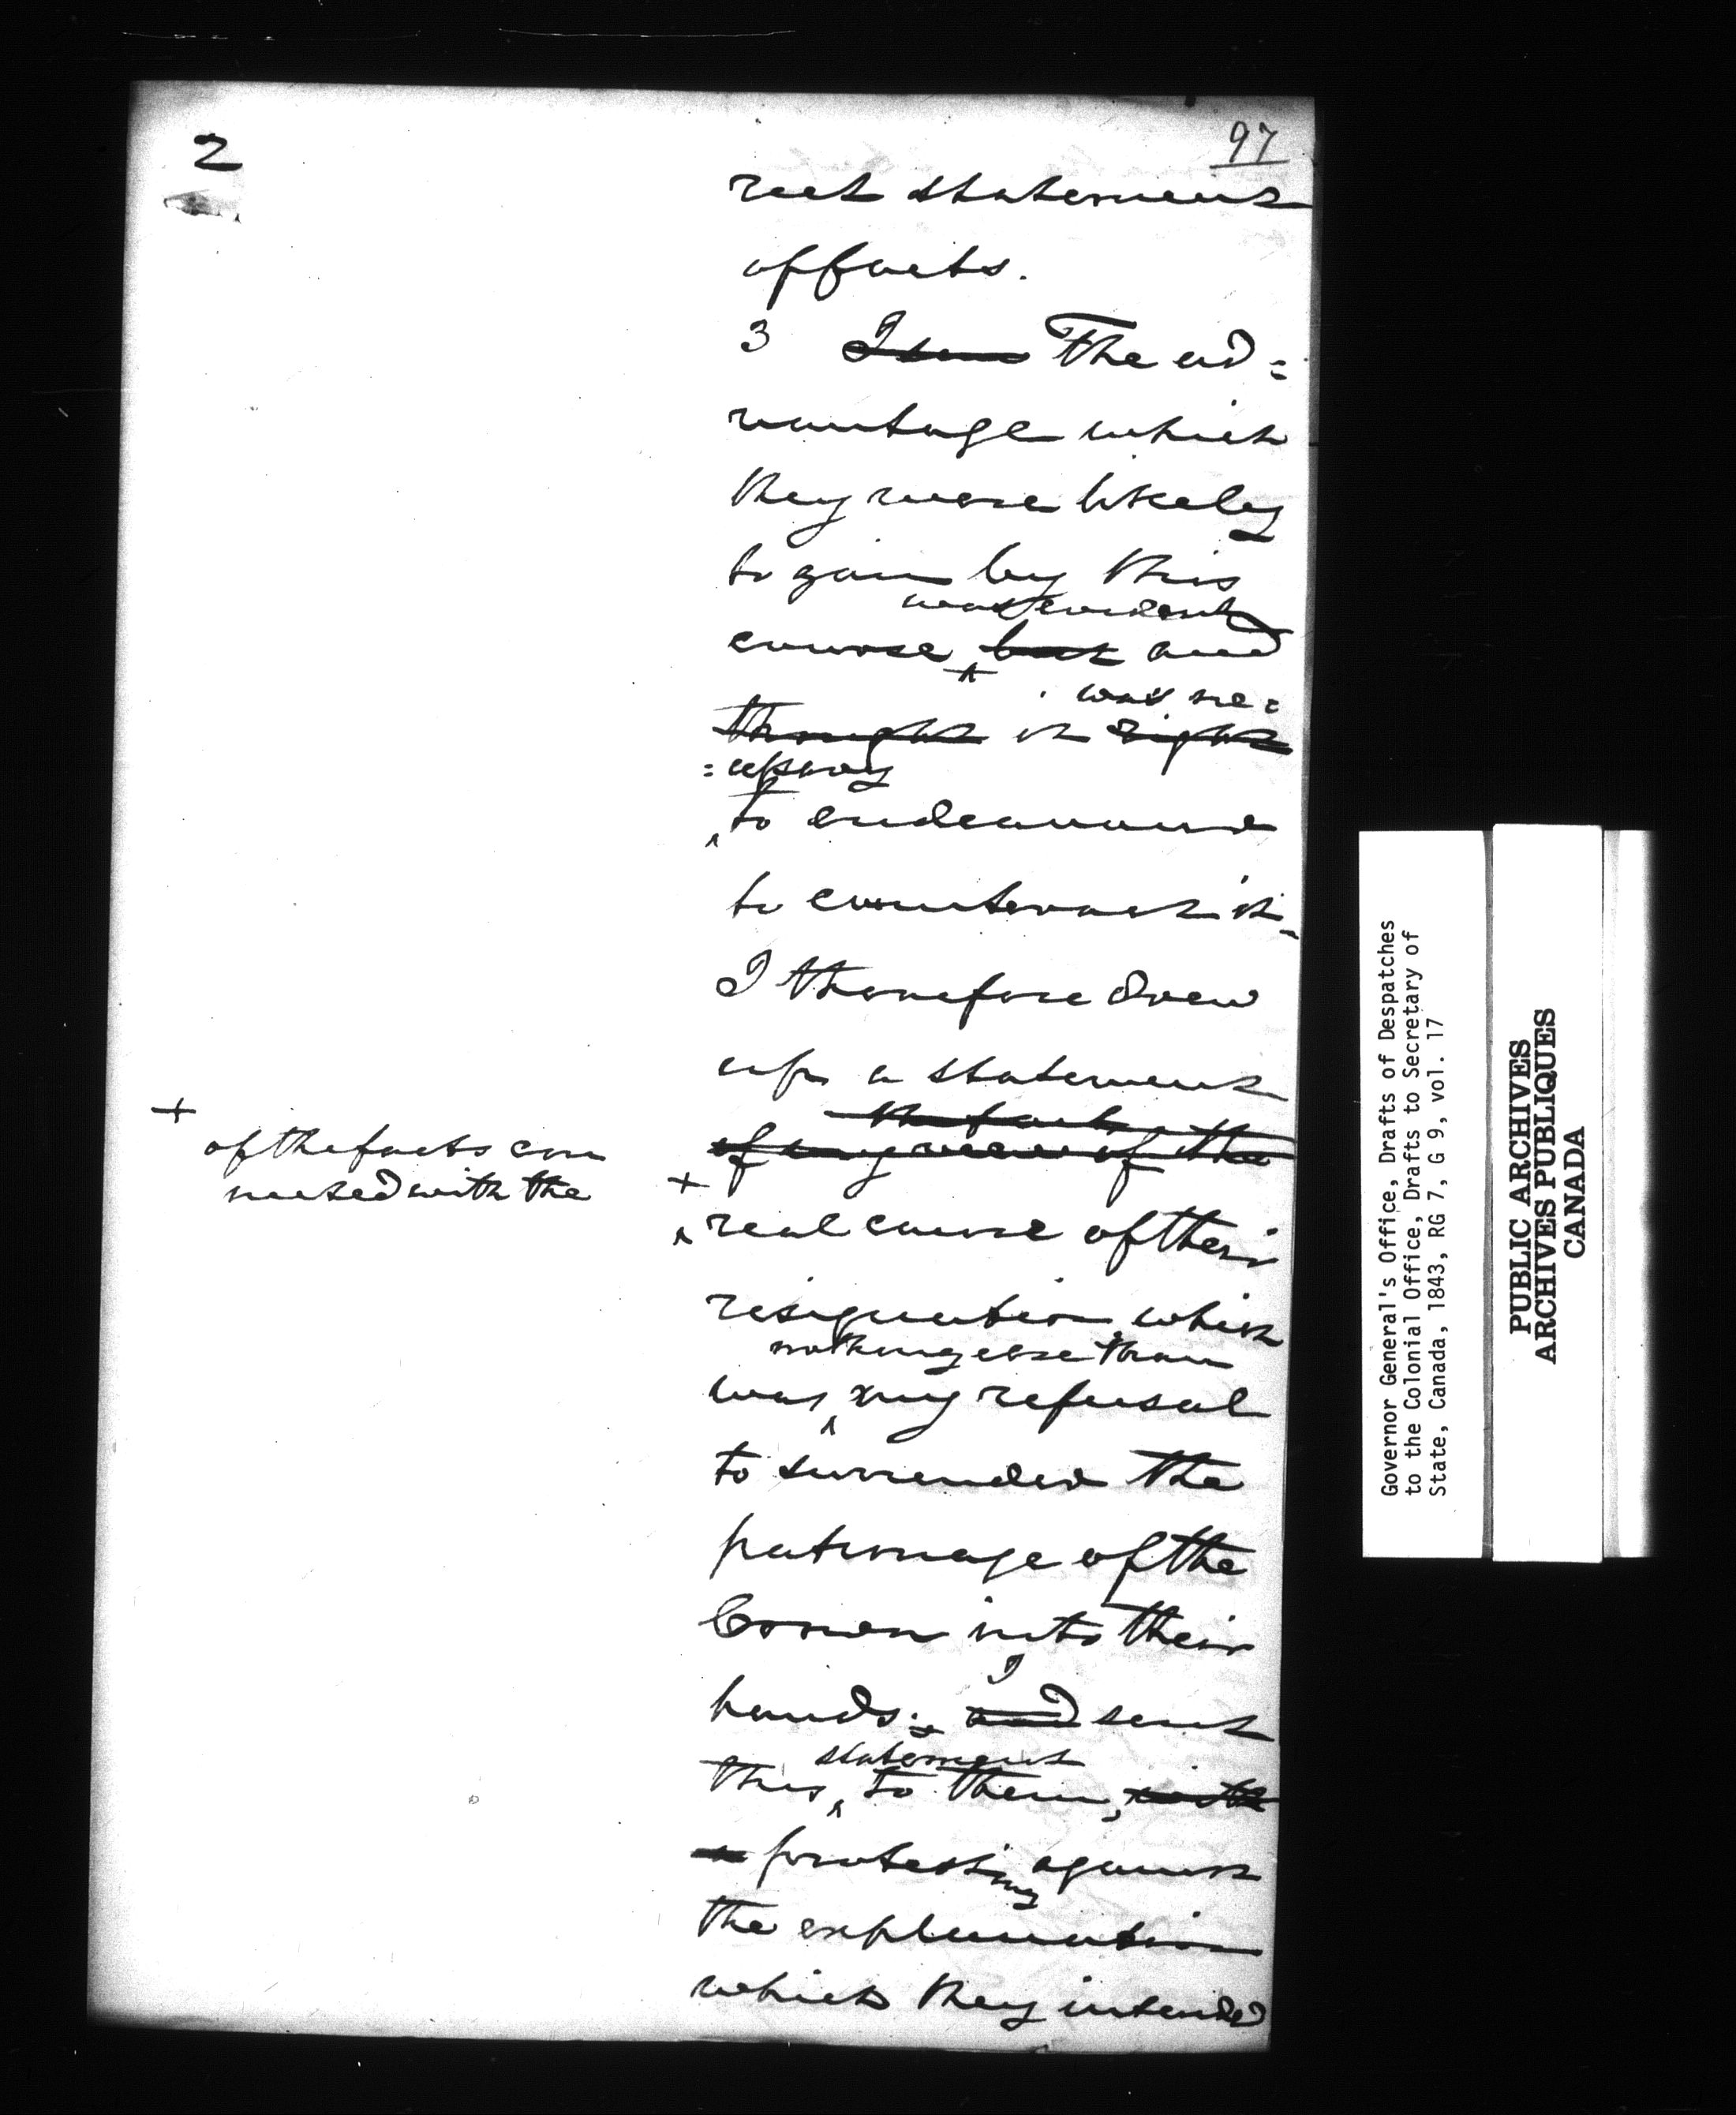 2
97
rect statement
of facts.
3 I saw The ad=
vantage which
they were likely
to gain by this
was evident
course but and
was ne=
thought it right
=cessary
to endeavour
to counteract it
I therefore drew
up a statement
the facts
of my view of the
+
of the facts con
nected with the
+
real cause of their
resignation which
nothing else than
was my refusal
to surrender the
patronage of the
Crown into their
I
hands; and sent
statement
this to them, with
a protesting against
the explanation
which they intended
Governor General's Office, Drafts of Despatches
to the Colonial Office, Drafts to Secretary of
State, Canada, 1843, RG 7, G 9, vol. 17
PUBLIC ARCHIVES
ARCHIVES PUBLIQUES
CANADA